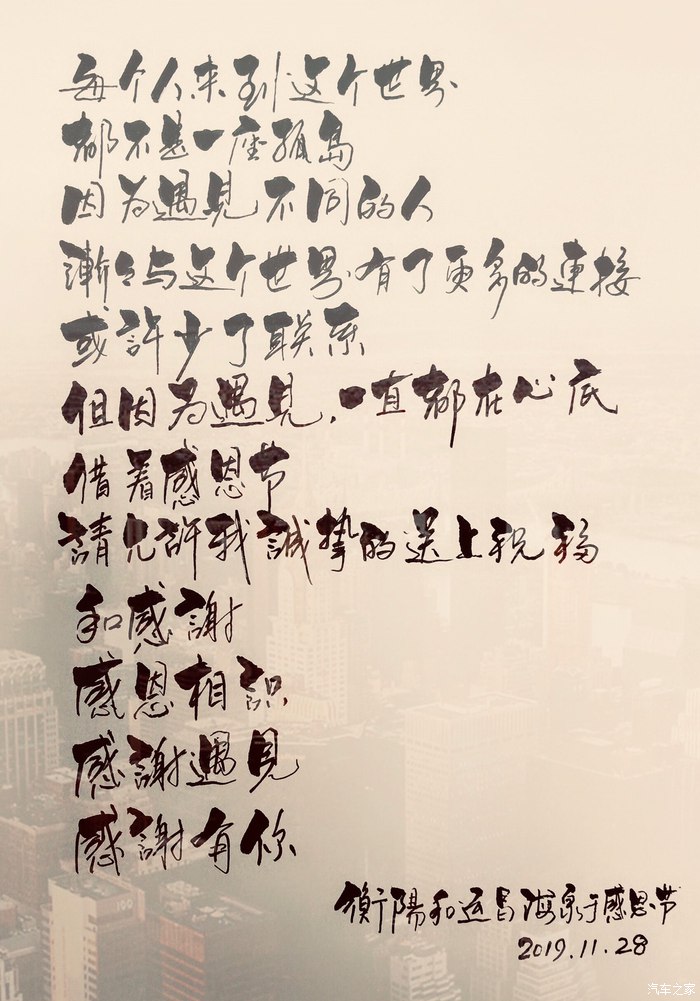 每个人来到这个世界
都不是一座孤岛
因为遇見不同的人
漸々与这个世界有了更多的連接
或許少了联系
但因为遇見,一直都在心底
借着感恩节
請允許我誠挚的送上祝福
和感謝
感恩相識
感謝遇見
感謝有你
衡陽和运昌海泉于感恩节
2019.11.28
汽车之家